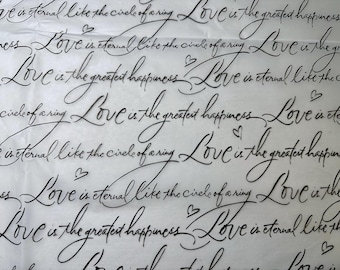 Love is eternal like the circle of a ring Love is the greatest
happiness Love is eternal like the circle of a ring
Love is the greatest happiness Love is eternal
like the circle of a ring Love is the greatest happiness
Love is eternal like the circle of a ring Love
is the greatest happiness Love is eternal like the
circle of a ring Love is the greatest happiness
Love is eternal like the circle of a ring Love is
Love is the greatest happiness Love is eternal